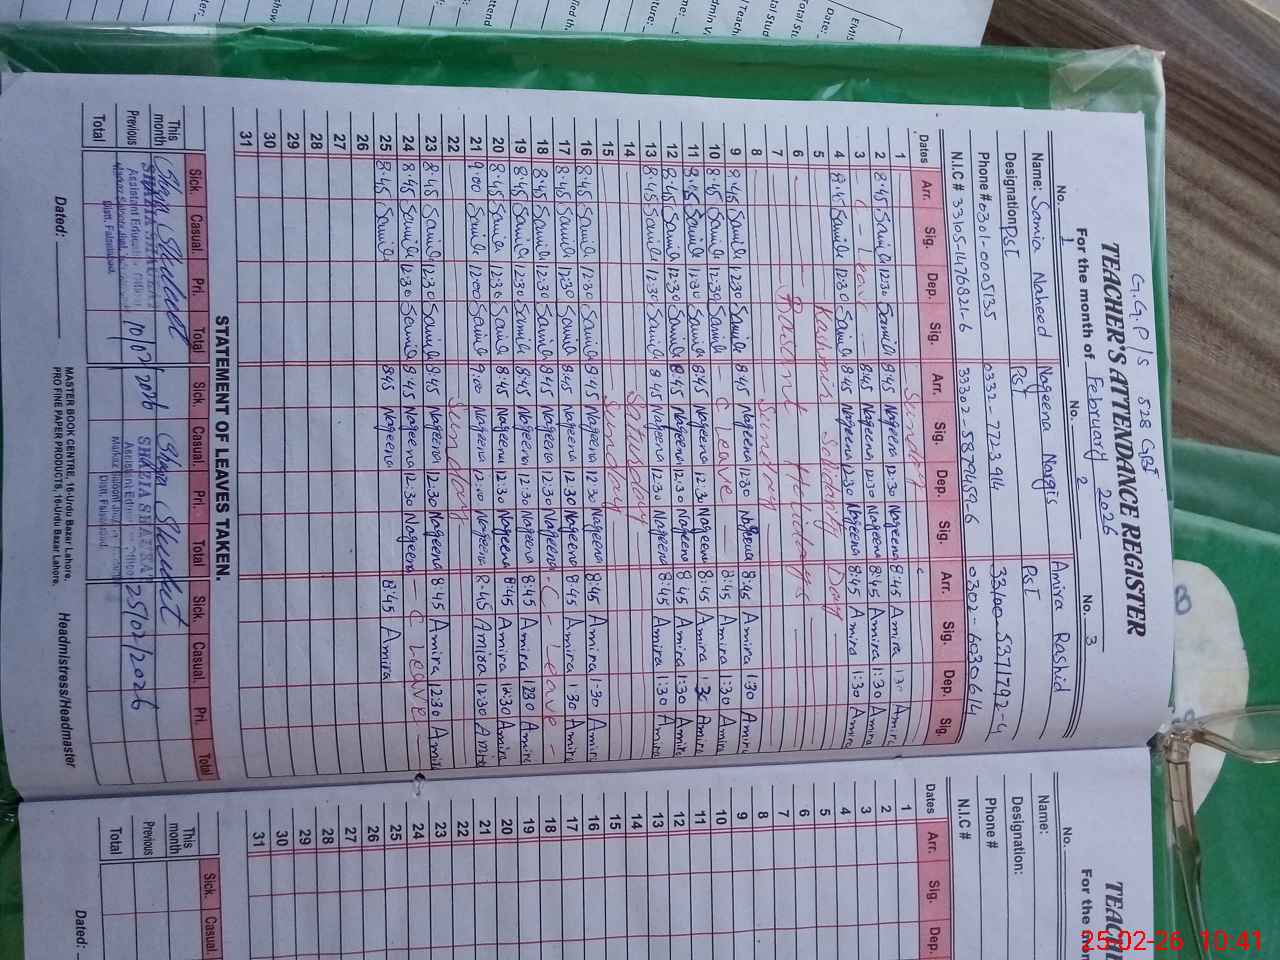 G.G.P/S 528 GB
TEACHER'S ATTENDANCE REGISTER
For the month of February 2026
No. 1 No. 2 No. 3
Name: Samia Naheed Nageena Nargis Amira Rashid
Designation: PST PST PST
Phone # 0301-0005135 0332-7723914
N.I.C # 33105-1476821-6 33302-5879459-6 0302-6030614
Dates Arr. Sig. Dep. Sig. Arr. Sig. Dep. Sig. Arr. Sig. Dep. Sig.
1 Sunday
2 8:45 Samia 12:30 Samia 8:45 Nageena 12:30 Nageena 8:45 Amira 1:30 Amira
3 C - Leave 8:45 Nageena 12:30 Nageena 8:45 Amira 1:30 Amira
4 8:45 Samia 12:30 Samia 8:45 Nageena 12:30 Nageena 8:45 Amira 1:30 Amira
5 Kashmir Solidarity Day
6 Basant Holidays
7
8 Sunday
9 Samia 12:30 Samia 8:45 Nageena 12:30 Nageena 8:45 Amira 1:30 Amira
10 8:45 Samia 12:30 Samia C Leave 8:45 Amira 1:30 Amira
11 8:45 Samia 12:30 Samia 8:45 Nageena 12:30 Nageena 8:45 Amira 1:30 Amira
12 8:45 Samia 12:30 Samia 8:45 Nageena 12:30 Nageena 8:45 Amira 1:30 Amira
13 8:45 Samia 12:30 Samia 8:45 Nageena 12:30 Nageena 8:45 Amira 1:30 Amira
14 Saturday
15 Sunday
16 8:45 Samia 12:30 Samia 8:45 Nageena 12:30 Nageena 8:45 Amira 1:30 Amira
17 8:45 Samia 12:30 Samia 8:45 Nageena 12:30 Nageena 8:45 Amira 1:30 Amira
18 8:45 Samia 12:30 Samia 8:45 Nageena 12:30 Nageena - C - Leave -
19 8:45 Samia 12:30 Samia 8:45 Nageena 12:30 Nageena 8:45 Amira Amira
20 8:45 Samia 12:30 Samia 8:45 Nageena 12:30 Nageena 8:45 Amira 12:30 Amira
21 9:00 Samia 12:00 Samia 9:00 Nageena 12:00 Nageena 8:45 Amira 12:30 Amira
22 Sunday
23 8:45 Samia 12:30 Samia 8:45 Nageena 12:30 Nageena 8:45 Amira 12:30 Amira
24 8:45 Samia 12:30 Samia 8:45 Nageena 12:30 Nageena - C Leave -
25 8:45 Samia 8:45 Nageena 8:45 Amira
26
27
28
29
30
31
STATEMENT OF LEAVES TAKEN.
Sick. Casual. Pri. Total Sick. Casual. Pri. Total Sick. Casual. Pri. Total
This month
Previous 10/02/2026 25/02/2026
Total
SHAZIA SHAUKAT
Assistant Education Officer
Distt. Faisalabad.
Dated:
MASTER BOOK CENTRE, 16-Urdu Bazar Lahore.
PRO FINE PAPER PRODUCTS, 16-Urdu Bazar Lahore.
Headmistress/Headmaster
TEACH
For the m
No.
Name:
Designation:
Phone #
N.I.C #
Dates Arr. Sig. Dep.
1
2
3
4
5
6
7
8
9
10
11
12
13
14
15
16
17
18
19
20
21
22
23
24
25
26
27
28
29
30
31
Sick. Casual.
This month
Previous
Total
Dated:
25-02-26 10:41